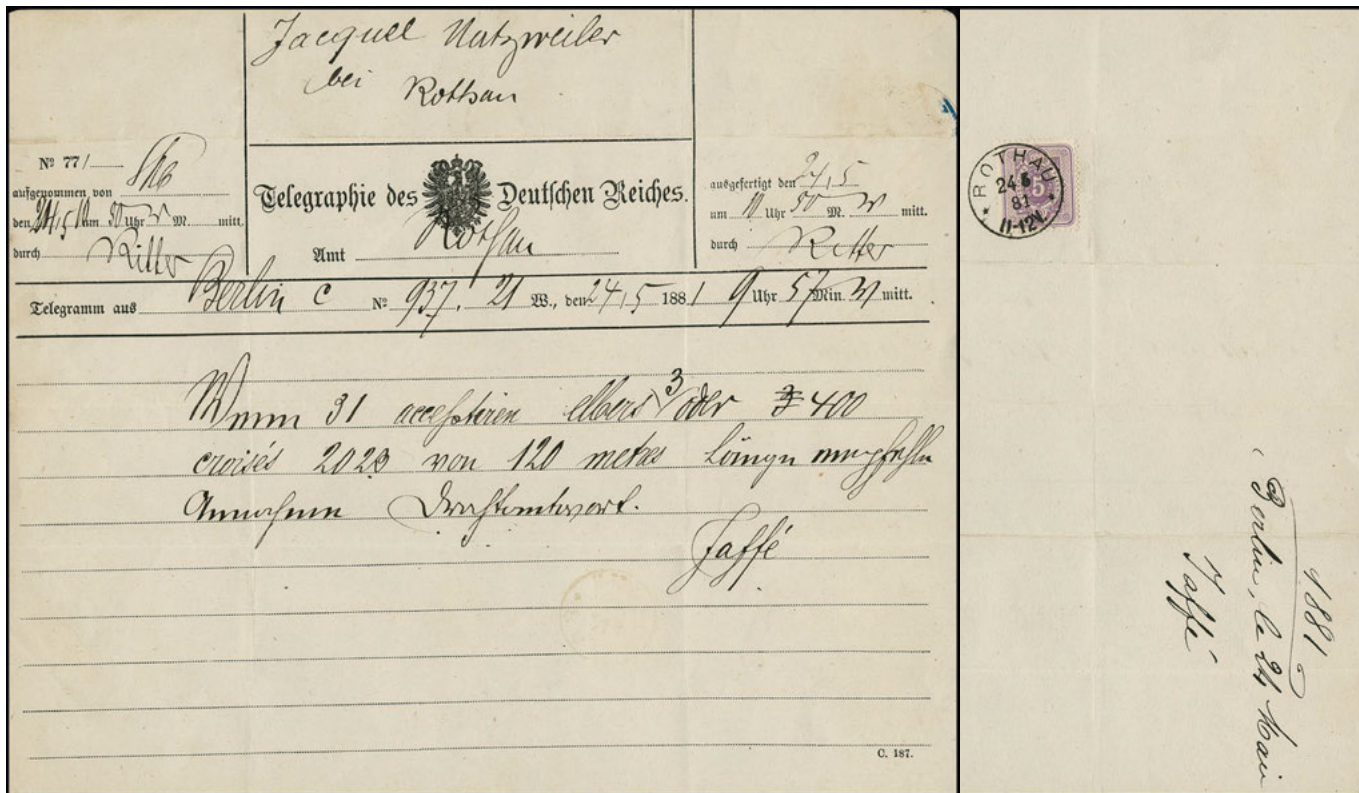 Jacquel Natzweiler
bei
Rothau
Nº 77/
aufgenommen von
den 24/5 10 Uhr 50 M. V mitt.
durch Ritter
Telegraphie des Deutschen Reiches.
Amt Rothau
ausgefertigt den 24/5
um 10 Uhr 50 M. V mitt.
durch Ritter
Telegramm aus Berlin C Nº 937. 21 W., den 24/5 1881 9 Uhr 57 Min V mitt.
Wenn 31 acceptiren elbers 3/ oder 400
croisés 2023 von 120 metres Länge empfehle
Annahme Drahtantwort.
Jaffé
C. 187.
ROTHAU
24 5
81
11-12V.
5
1881
Berlin, le 24 Mai
Jaffé